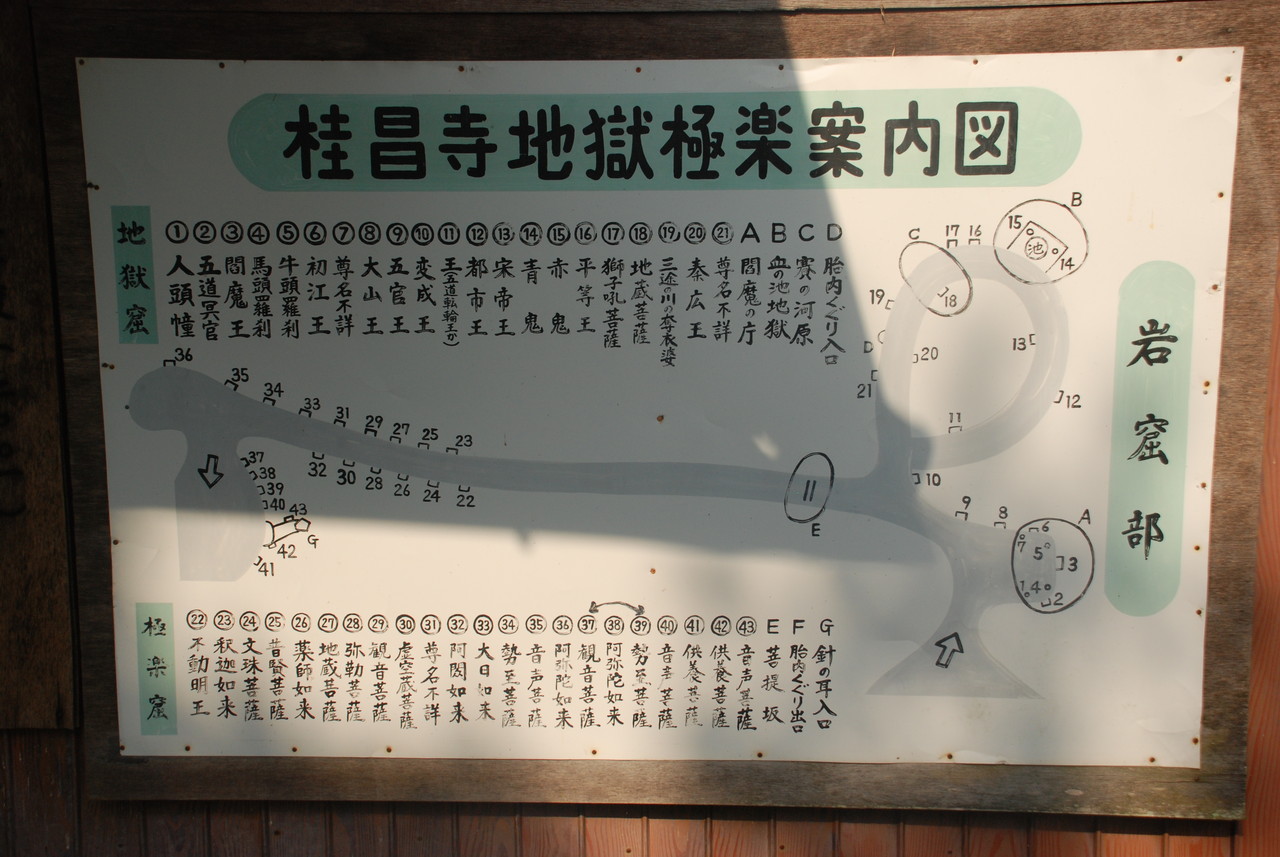 桂昌寺地獄極楽案内図
地獄窟
①人頭幢
②五道冥官
③閻魔王
④馬頭羅刹
⑤牛頭羅刹
⑥初江王
⑦尊名不詳
⑧大山王
⑨五官王
⑩変成王
⑪王(五道転輪王か)
⑫都市王
⑬宋帝王
⑭青鬼
⑮赤鬼
⑯平等王
⑰獅子吼菩薩
⑱地蔵菩薩
⑲三途の川の奪衣婆
⑳秦広王
㉑尊名不詳
A閻魔の庁
B血の池地獄
C賽の河原
D胎内くぐり入口
岩窟部
B
15
池
14
C
17
16
18
19
D
20
21
13
12
11
10
9
8
A
6
7
5
3
1
4
2
36
35
34
33
31
29
27
25
23
32
30
28
26
24
22
E
37
38
39
40
43
42
G
41
極楽窟
㉒不動明王
㉓釈迦如来
㉔文珠菩薩
㉕普賢菩薩
㉖薬師如来
㉗地蔵菩薩
㉘弥勒菩薩
㉙観音菩薩
㉚虚空蔵菩薩
㉛尊名不詳
㉜阿閦如来
㉝大日如来
㉞勢至菩薩
㉟音声菩薩
㊱阿弥陀如来
㊲観音菩薩
㊳阿弥陀如来
㊴勢至菩薩
㊵音声菩薩
㊶供養菩薩
㊷供養菩薩
㊸音声菩薩
E菩提坂
F胎内くぐり出口
G針の耳入口